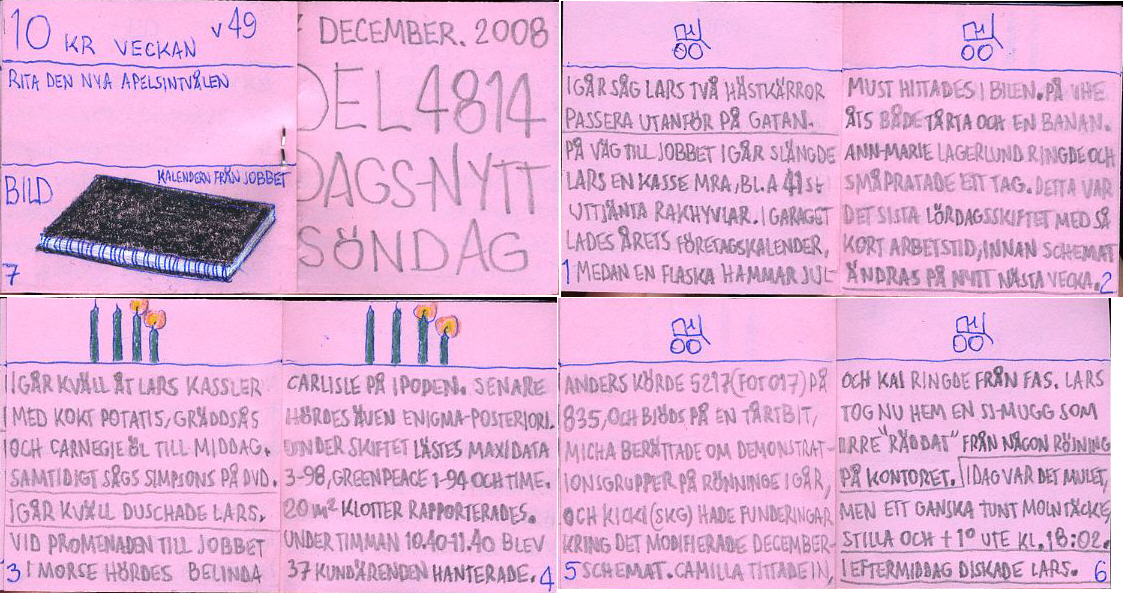 10 KR VECKAN v49
RITA DEN NYA APELSINTVÅLEN
BILD
KALENDERN FRÅN JOBBET
7
DECEMBER. 2008
DEL 4814
DAGS-NYTT
SÖNDAG
IGÅR SÅG LARS TVÅ HÄSTKÄRROR
PASSERA UTANFÖR PÅ GATAN.
PÅ VÄG TILL JOBBET IGÅR SLÄNGDE
LARS EN KASSE MRA, BL.A 41 ST
UTTJÄNTA RAKHYVLAR. I GARAGET
LADES ÅRETS FÖRETAGSKALENDER,
1 MEDAN EN FLASKA HAMMAR JUL-
MUST HITTADES I BILEN. PÅ VHE
ÅTS BÅDE TÅRTA OCH EN BANAN.
ANN-MARIE LAGERLUND RINGDE OCH
SMÅPRATADE ETT TAG. DETTA VAR
DET SISTA LÖRDAGSSKIFTET MED SÅ
KORT ARBETSTID, INNAN SCHEMAT
ÄNDRAS PÅ NYTT NÄSTA VECKA. 2
IGÅR KVÄLL ÅT LARS KASSLER
MED KOKT POTATIS, GRÄDDSÅS
OCH CARNEGIE ÖL TILL MIDDAG.
SAMTIDIGT SÅGS SIMPSONS PÅ DVD.
IGÅR KVÄLL DUSCHADE LARS.
VID PROMENADEN TILL JOBBET
3 I MORSE HÖRDES BELINDA
CARLISLE PÅ IPODEN. SENARE
HÖRDES ÄVEN ENIGMA-POSTERIORI.
UNDER SKIFTET LÄSTES MAXIDATA
3-98, GREENPEACE 1-94 OCH TIME.
20 m² KLOTTER RAPPORTERADES.
UNDER TIMMAN 10.40-11.40 BLEV
37 KUNDÄRENDEN HANTERADE. 4
ANDERS KÖRDE 5217 (FOTO17) PÅ
835, OCH BJÖDS PÅ EN TÅRTBIT,
MICHA BERÄTTADE OM DEMONSTRAT-
IONSGRUPPER PÅ RÖNNINGE IGÅR,
OCH KICKI (SKG) HADE FUNDERINGAR
KRING DET MODIFIERADE DECEMBER-
5 SCHEMAT. CAMILLA TITTADE IN,
OCH KAI RINGDE FRÅN FAS. LARS
TOG NU HEM EN SJ-MUGG SOM
"RÄDDAT" FRÅN NÅGON RÖJNING
PÅ KONTORET. IDAG VAR DET MULET,
MEN ETT GANSKA TUNT MOLNTÄCKE
STILLA OCH +1° UTE KL. 18:02.
I EFTERMIDDAG DISKADE LARS. 6